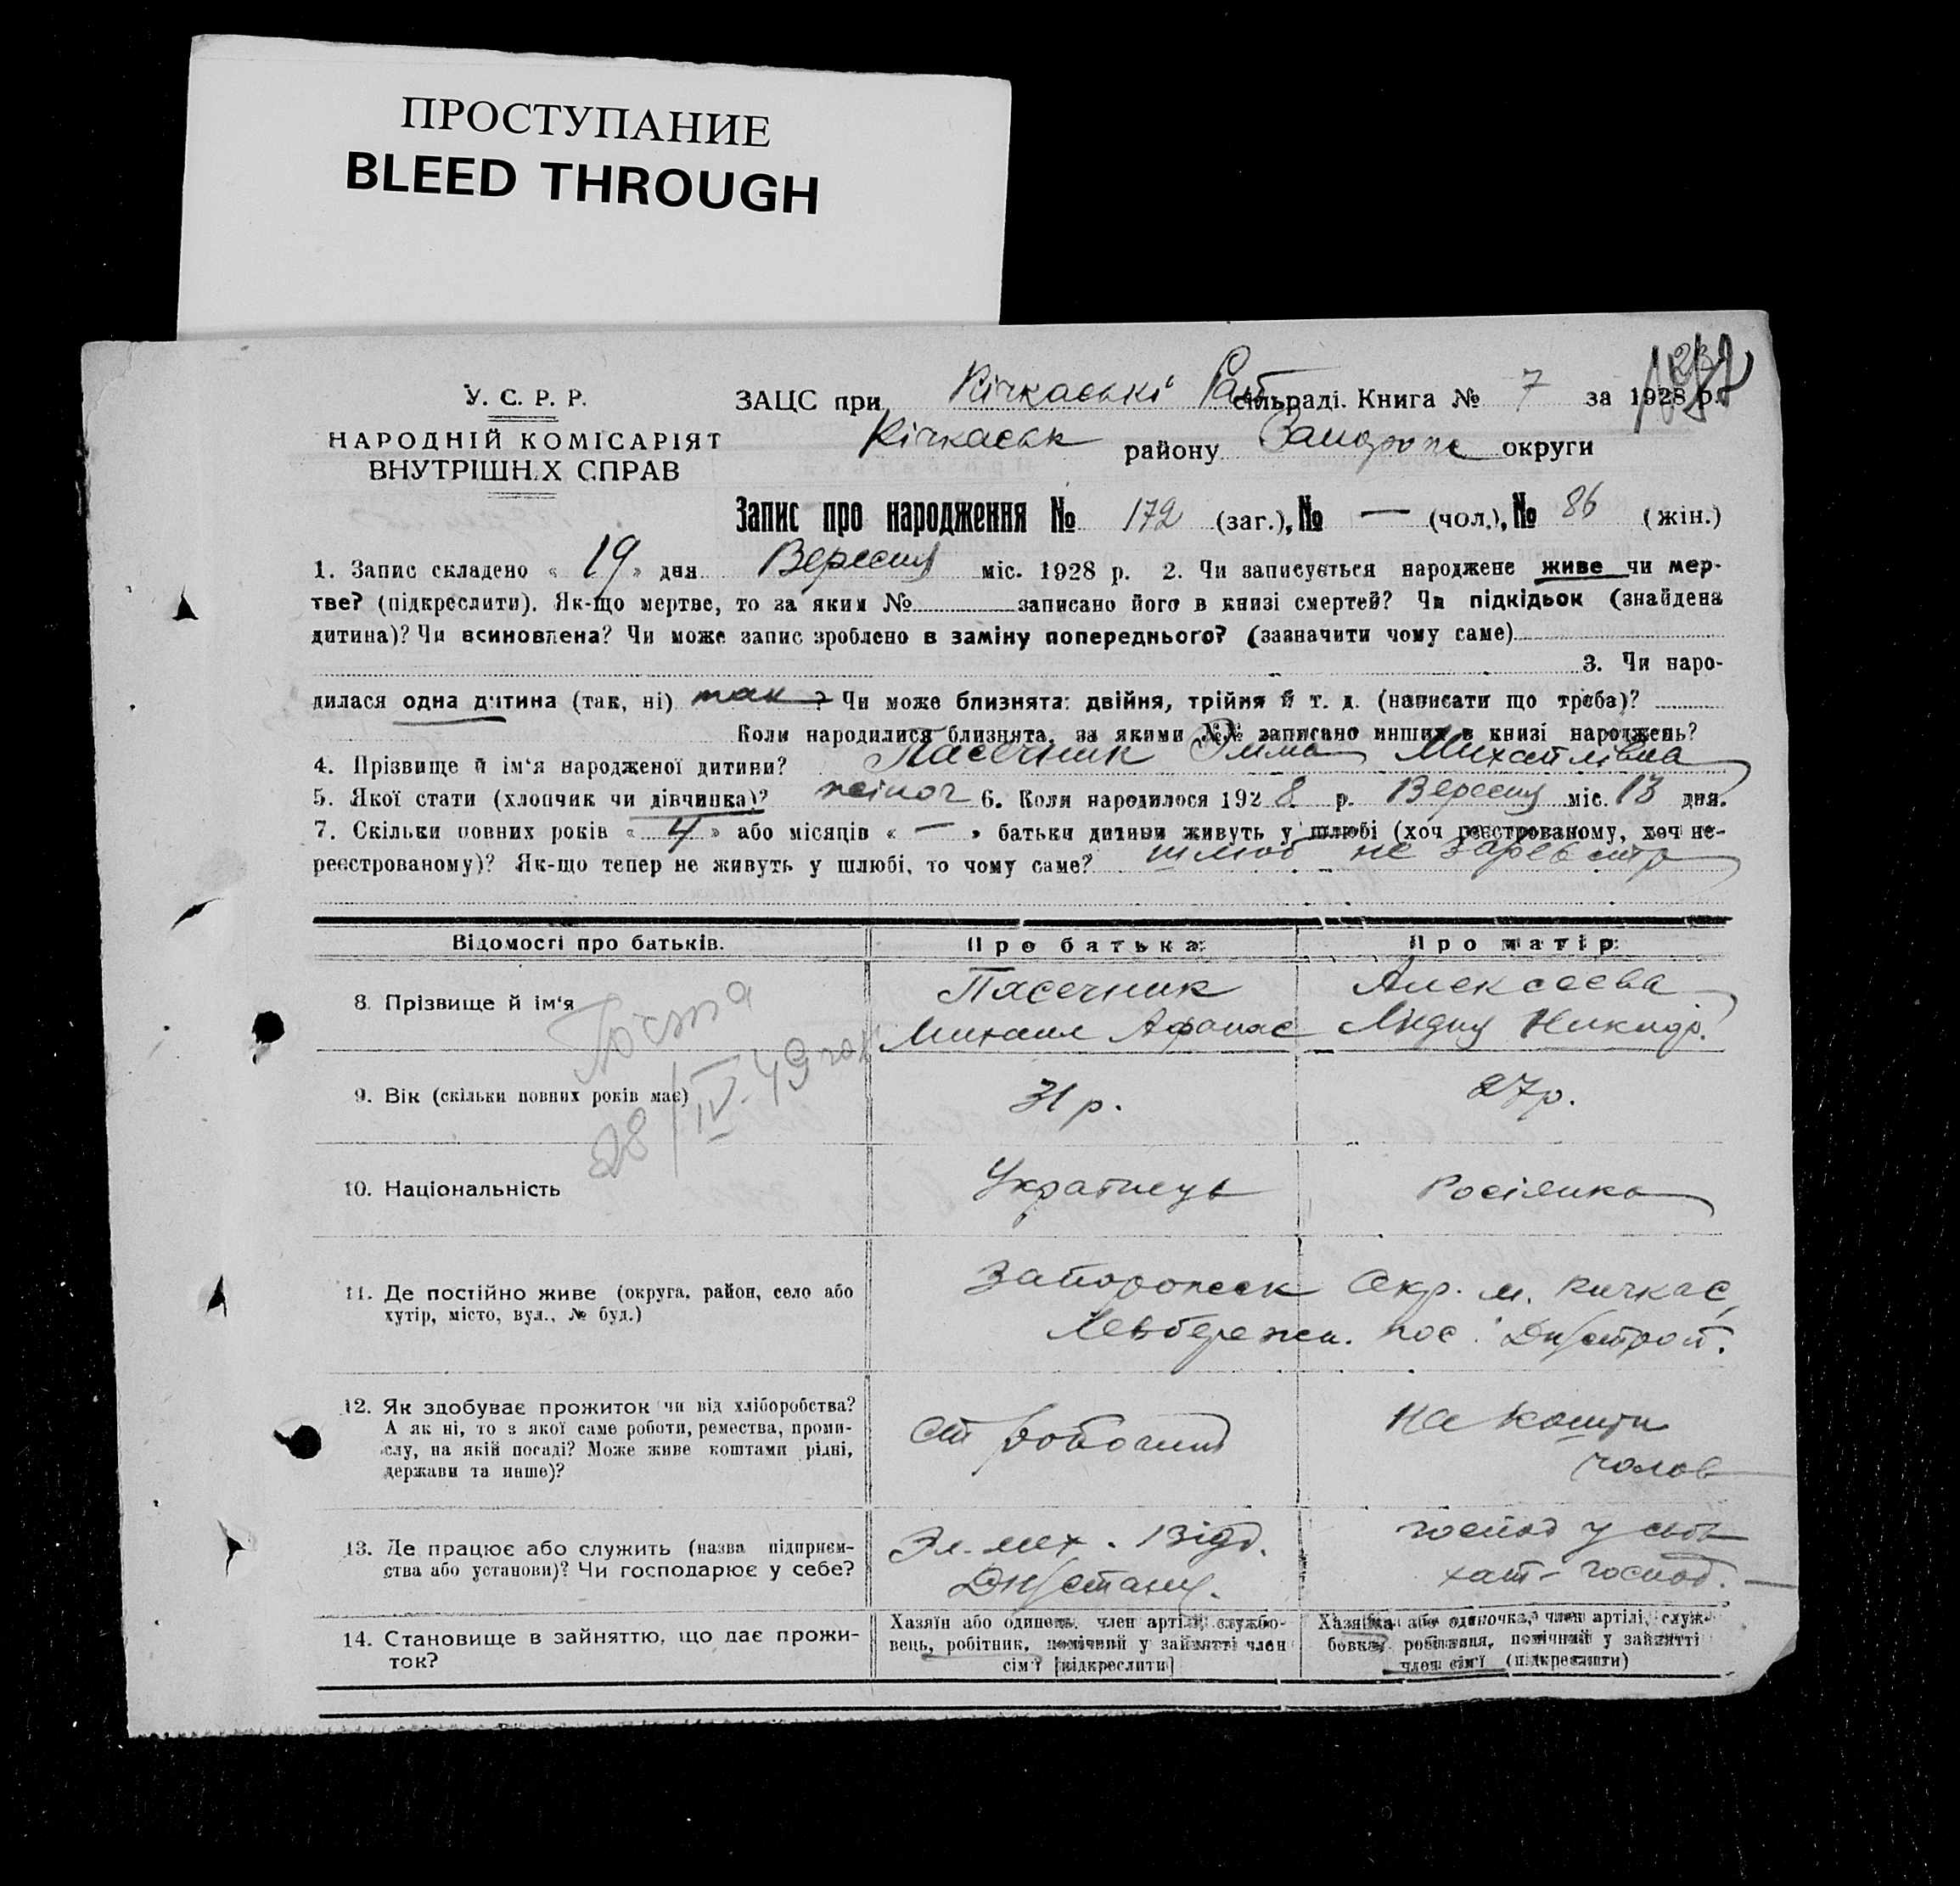 ПРОСТУПАНИЕ
BLEED THROUGH
У. С. Р. Р.
НАРОДНІЙ КОМІСАРІЯТ
ВНУТРІШНІХ СПРАВ
ЗАЦС при Кічкаські Рай сільраді. Книга № 7 за 1928 р.
Кічкаськ району Запоріж округи
Запис про народження № 172 (заг.), № — (чол.), № 86 (жін.)
1. Запис складено « 19 » дня Вересня міс. 1928 р. 2. Чи записується народжене живе чи мер-
тве? (підкреслити). Як-що мертве, то за яким № записано його в книзі смертей? Чи підкідьок (знайдена
дитина)? Чи всиновлена? Чи може запис зроблено в заміну попереднього? (зазначити чому саме)
3. Чи наро-
дилася одна дитина (так, ні) так ? Чи може близнята: двійня, трійня й т. д. (написати що треба)?
Коли народилися близнята, за якими №№ записано инших в книзі народжень?
4. Прізвище й ім'я народженої дитини? Пасечник Эмма Михайлівна
5. Якої стати (хлопчик чи дівчинка)? жіноч 6. Коли народилося 1928 р. Вересня міс. 13 дня.
7. Скільки повних років « 4 » або місяців « — » батьки дитини живуть у шлюбі (хоч реєстрованому, хоч не-
реєстрованому)? Як-що тепер не живуть у шлюбі, то чому саме? шлюб не зареєстр
Відомості про батьків.
Про батька:
Про матір:
8. Прізвище й ім'я
Пасечник
Михаил Афанас
Алексеева
Лидия Никидр.
9. Вік (скільки повних років має)
31 р.
27 р.
28/IV-49
10. Національність
Українець
Росіянка
11. Де постійно живе (округа, район, село або
хутір, місто, вул., № буд.)
Запорожск Окр. м. Кичкас,
Левбережн. пос. Дн/строй.
12. Як здобуває прожиток чи від хліборобства?
А як ні, то з якої саме роботи, ремества, проми-
слу, на якій посаді? Може живе коштами рідні,
держави та инше)?
робочий
На кошти
чолов
13. Де працює або служить (назва підприєм-
ства або установи)? Чи господарює у себе?
Эл. мех. Відд.
Дн/станц.
господ у своїй
хат - господ.
14. Становище в зайняттю, що дає прожи-
ток?
Хазяїн або одинець, член артілі, службо-
вець, робітник, помічний у зайнятті член
сім'ї (підкреслити)
Хазяйка або одиночка, член артілі, служ-
бовка, робітниця, помічний у зайнятті
член сім'ї (підкреслити)